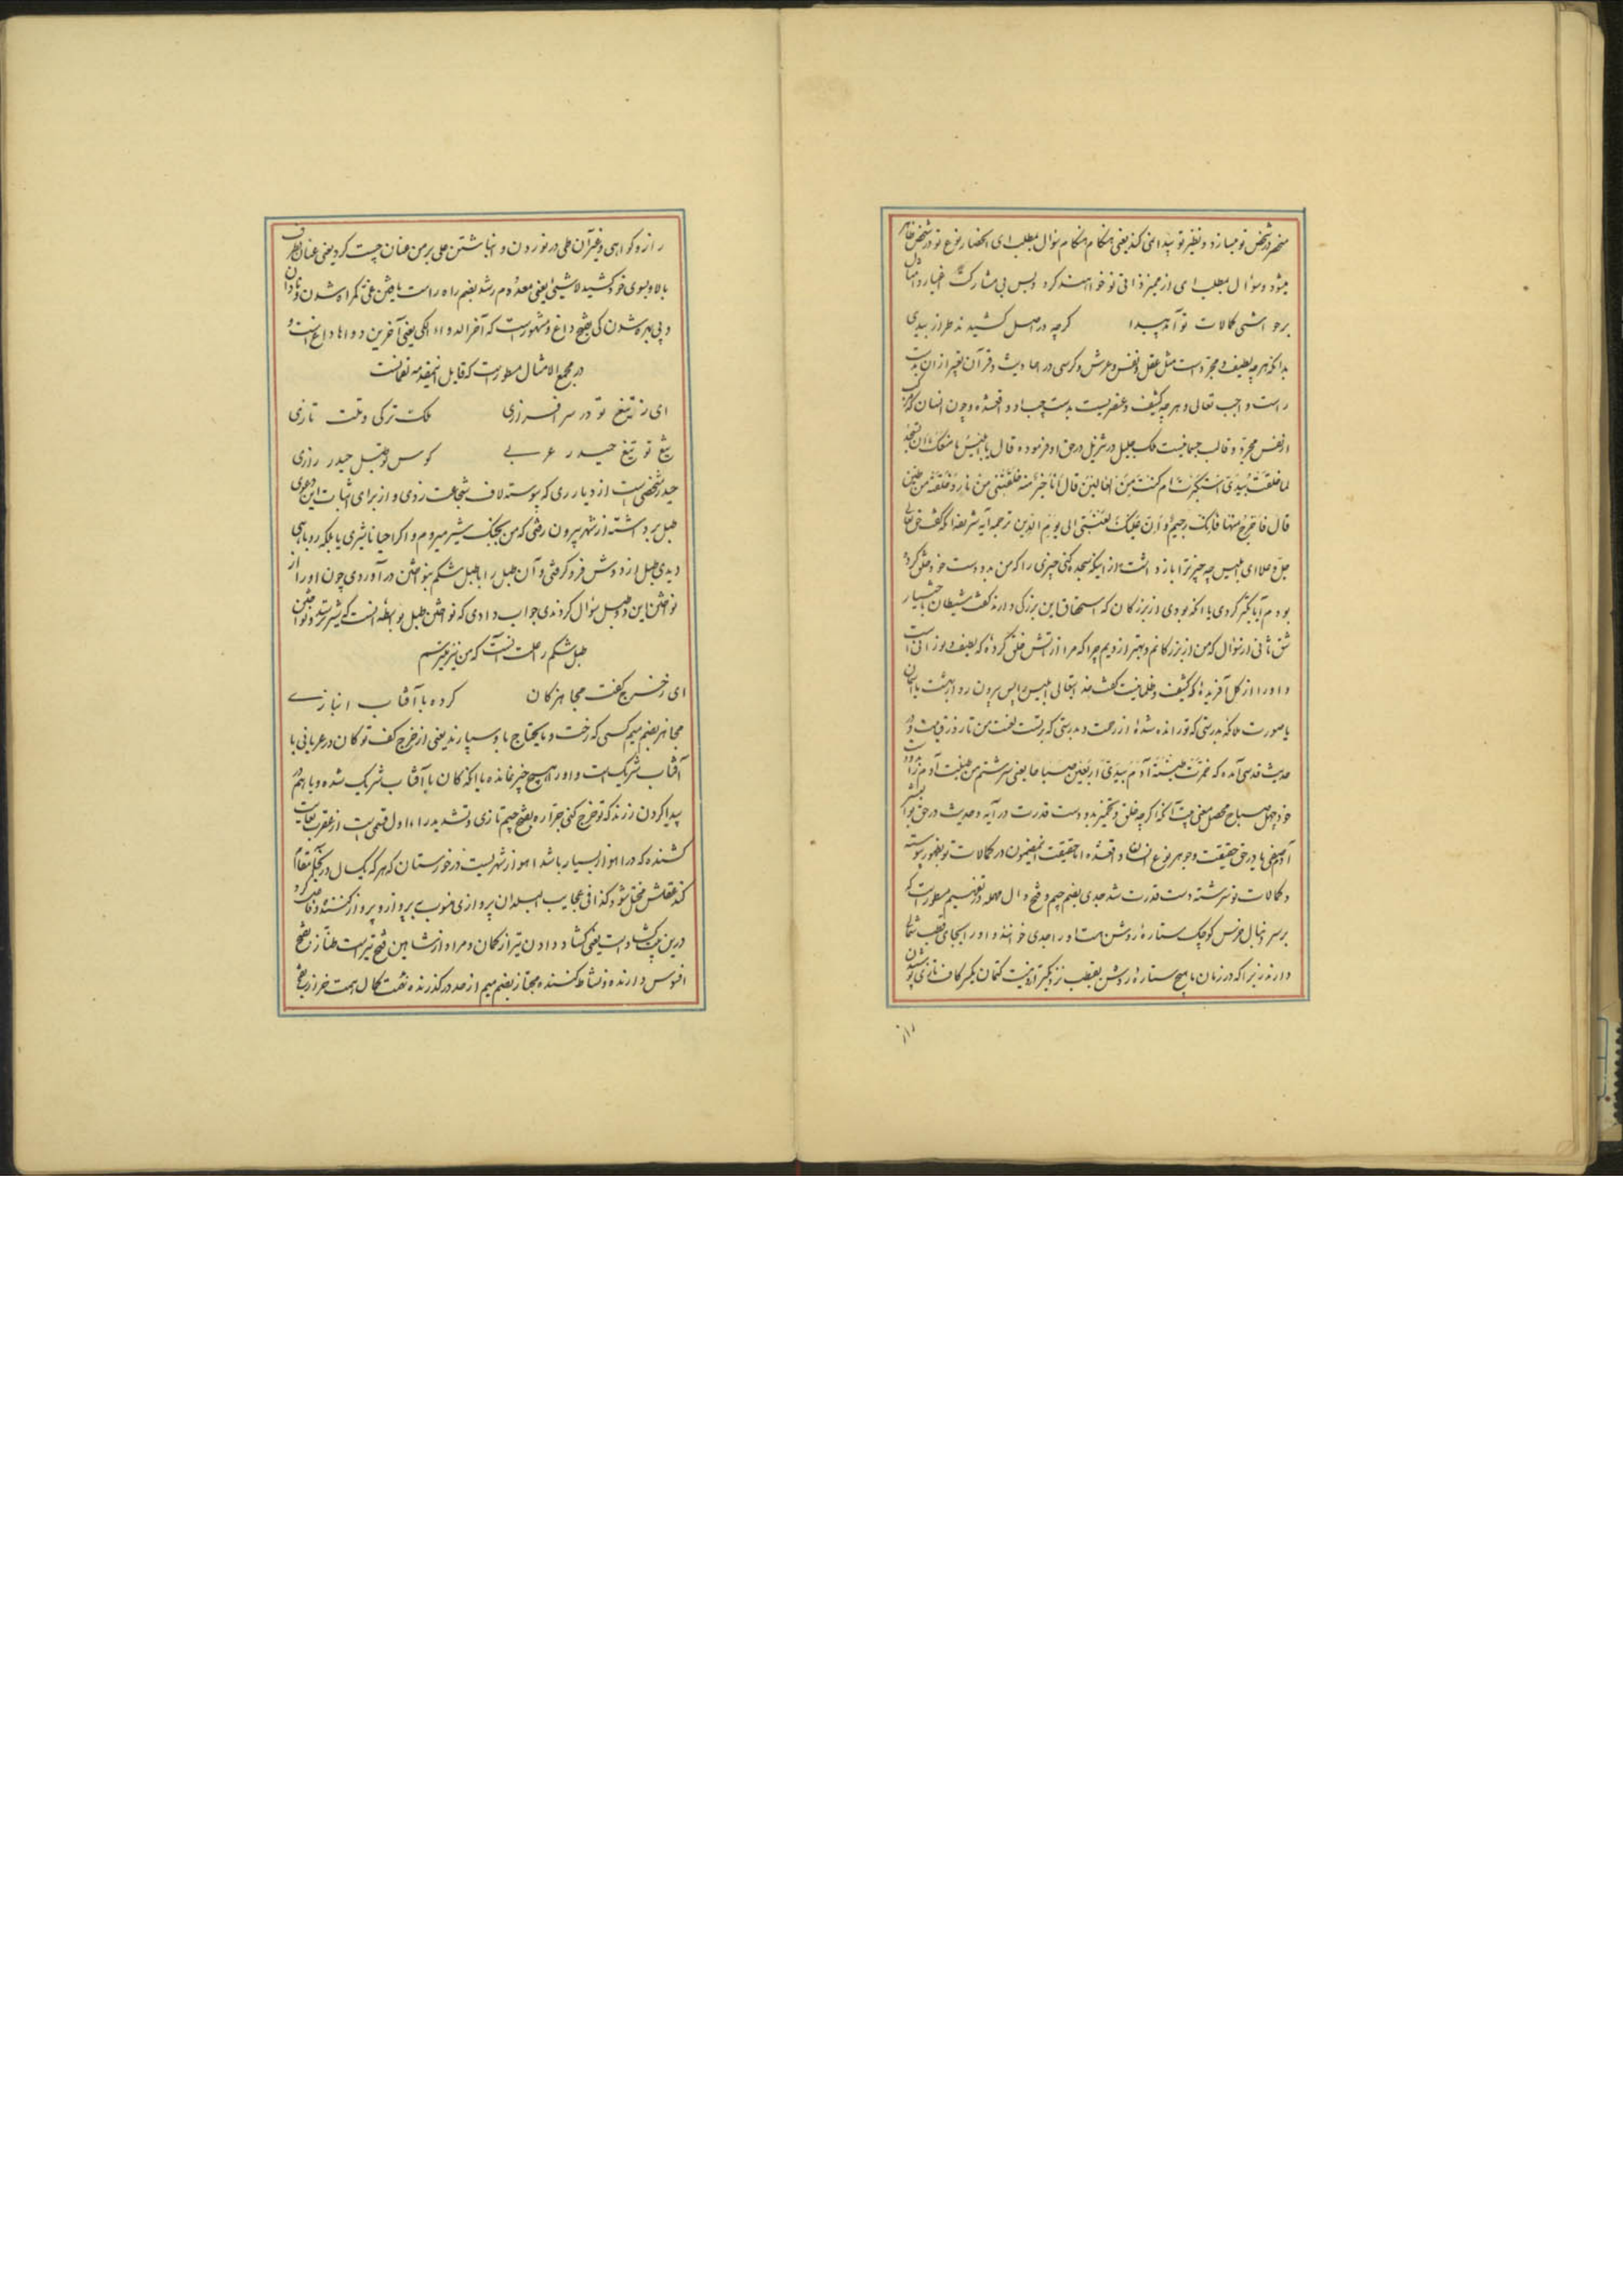 منحصر در شخص تو میسازد و نظیر تو پیدا نمی کند یعنی هنگام هنگام سؤال بمطلب ای انحصار نوع تو در شخص ظاهر
میشود و سؤال بمطلب ای از ممیز ذاتی تو خواهند کرد و بس بی مشارکت اغیار و امثال
بر حواشی کمالات تو آمد پیدا گرچه در اصل کشیدند طراز بیدی
بدانکه هر چه لطیف و مجرد است مثل عقل و نفس و عرش و کرسی در احادیث و قرآن تعبیر از ان بدست
راست واجب تعالی و هر چه کثیف و عنصریست بدست چپ او واقعشده و چون انسان که مرکب
از نفس مجرد و قالب جسمانیست ملک جلیل در تنزیل در حق او فرموده قال یا ابلیس ما منعک ان تسجد
لما خلقت بیدی استکبرت ام کنت من العالین قال انا خیر منه خلقتنی من نار و خلقته من طین
قال فاخرج منها فانک رجیم و ان علیک لعنتی الی یوم الدین ترجمه آیه شریفه انکه گفت حق تعالی
جل و علا ای ابلیس چه چیز ترا باز داشت از اینکه سجده کنی چیزی را که من بدو دست خود خلق کرده
بودم آیا تکبر کردی یا انکه بودی از بزرگان که استحقاق این بزرگی دارند گفت شیطان باختیار
شق ثانی از سؤال که من از بزرگانم و بهتر از ویم چرا که مرا از آتش خلق کردهٔ که لطیف و نورانی است
و او را از گل آفریدهٔ که کثیف و ظلمانیست گفت خدایتعالی ابلیس را پس بیرون رو از بهشت یا آسمان
یا صورت ملائکه بدرستی که تو رانده شدهٔ از رحمت و بدرستی که بر تست لعنت من تا روز قیامت و در
حدیث قدسی آمده که خمرت طینة آدم بیدی اربعین صباحا یعنی سرشتم من طینت آدم را بدو دست
خود چهل صباح محصل معنی بیت آنکه اگر چه خلق و تخمیر بدو دست قدرت در آیه و حدیث در حق ابو البشر
آدم صفی یا در حق حقیقت و جوهر نوع انسان واقعشده اما حقیقت اینمضمون در کمالات تو بظهور پیوسته
و کمالات تو سرشته دست قدرت شد جدی بضم جیم و فتح دال مهمله در تفهیم مسطور است که
بر سر دنبال خرس کوچک ستارهٔ روشن هست او را جدی خوانند و او را بجای قطب شمالی
دارند زیرا که در زمان ما هیچ ستارهٔ روشن بقطب نزدیکتر ازو نیست کتمان بکسر کاف تازی پوشیدن
راز
راز و گواهی و غیر آن طی در نوردن و انباشتن علی بر من عنان چست کرد یعنی عنان بطرف
بالا و بسوی خود کشید لاشیئ یعنی معدوم رشد بضم راه راست یافتن غی گمراه شدن و نادان
و بی بهره شدن کی بفتح داغ و مشهور است که آخر الدواء الکی یعنی آخرین دواها داغ است و
در مجمع الامثال مسطور است که قایل اینمقدمه لقمانست
ای ز تیغ تو در سر افرازی ملک ترکی و ملت تازی
تیغ تو تیغ حیدر عربی کوس تو طبل حیدر رازی
حیدر شخصی است از دیار ری که پیوسته لاف شجاعت زدی و از برای اثبات این دعوی
طبل برداشته از شهر بیرون رفتی که من بجنگ شیر میروم و اگر احیانا شیری یا بلکه روباهی
دیدی طبل از دوش فرو گرفتی و آن طبل را با طبل شکم بنواختن در آوردی چون او را از
نواختن این دو طبل سؤال کردندی جواب دادی که نواختن طبل بواسطه آنست که شیر ترسد و نواختن
طبل شکم را علت آنست که من نیز میترسم
ای ز خرج کفت مجاهز کان کرده با آفتاب انبازی
مجاهز بضم میم کسی که رخت و مایحتاج باو سپارند یعنی از خرج کف تو کان در عریانی با
آفتاب شریکست و او را هیچ چیز نمانده یا انکه کان با آفتاب شریک شده و با هم در
پیدا کردن زرند که تو خرج کنی جراره بفتح جیم تازی و تشدید راء اول قسمی است از عقرب بغایت
کشنده که در اهواز بسیار باشد اهواز شهریست در خوزستان که هر که یکسال در آنجا مقام
کند عقلش مختل شود کذا فی عجایب البلدان پروازی منسوب بپرواز و پرواز کننده و فاعل کرد
درین بیت گشاد است یعنی گشاد دادن تیر از کمان و مراد از شاهین فتح تیر است طناز بفتح
افسوس دارنده و نشاط کننده مجتاز بضم میم از حد در گذرنده نعت کمال همت خراز بفتح